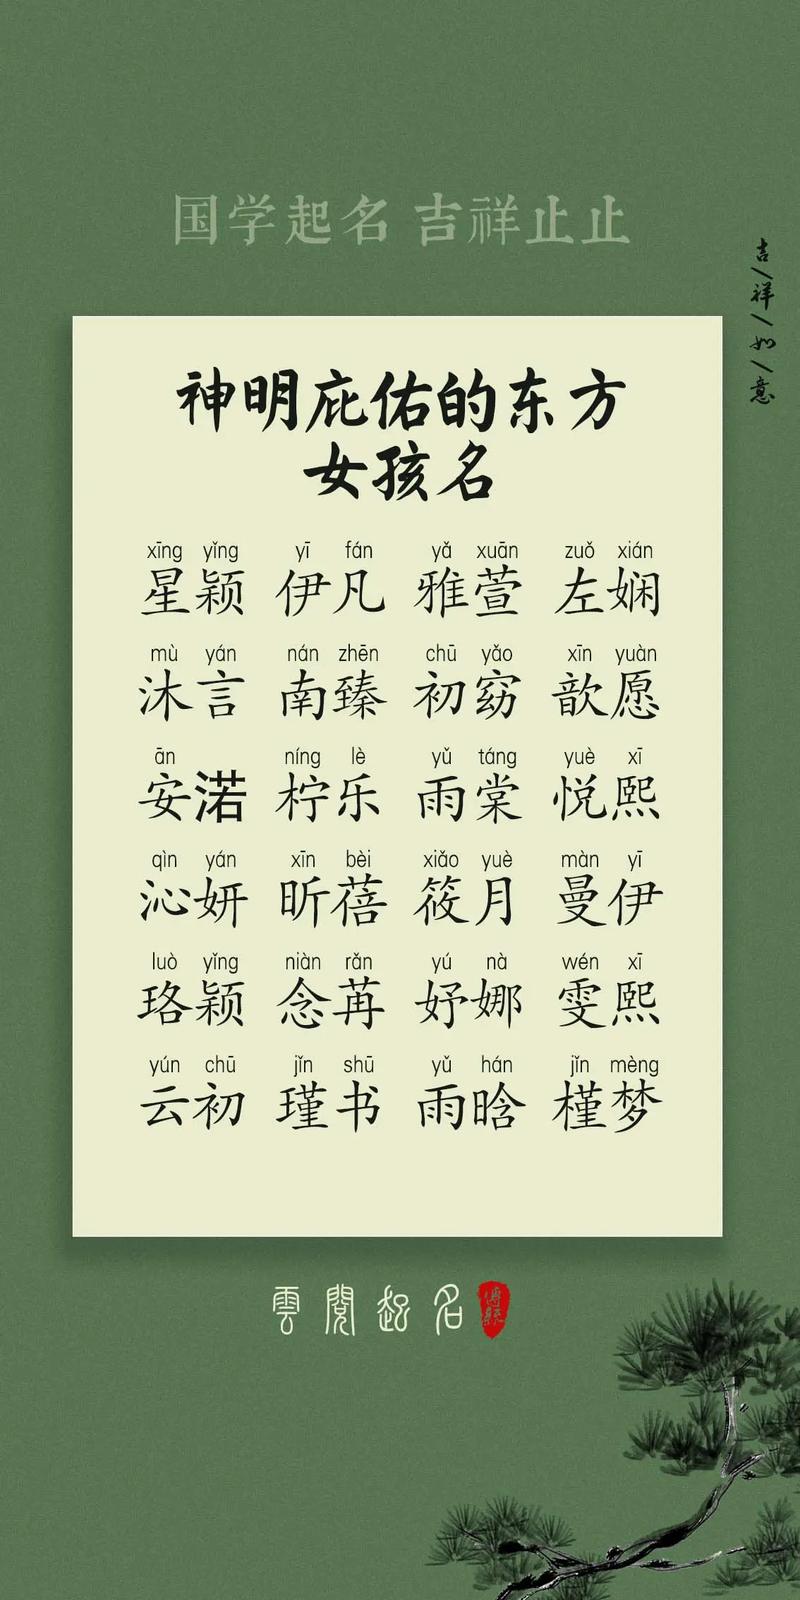 国学起名 吉祥止止
吉祥如意
神明庇佑的东方
女孩名
xīng yǐng yī fán yǎ xuān zuǒ xián
星颖 伊凡 雅萱 左娴
mù yán nán zhēn chū yǎo xīn yuàn
沐言 南臻 初窈 歆愿
ān níng lè yǔ táng yuè xī
安渃 柠乐 雨棠 悦熙
qìn yán xīn bèi xiǎo yuè màn yī
沁妍 昕蓓 筱月 曼伊
luò yǐng niàn rǎn yú nà wén xī
珞颖 念苒 妤娜 雯熙
yún chū jǐn shū yǔ hán jǐn mèng
云初 瑾书 雨晗 槿梦
雲閲起名
傳統